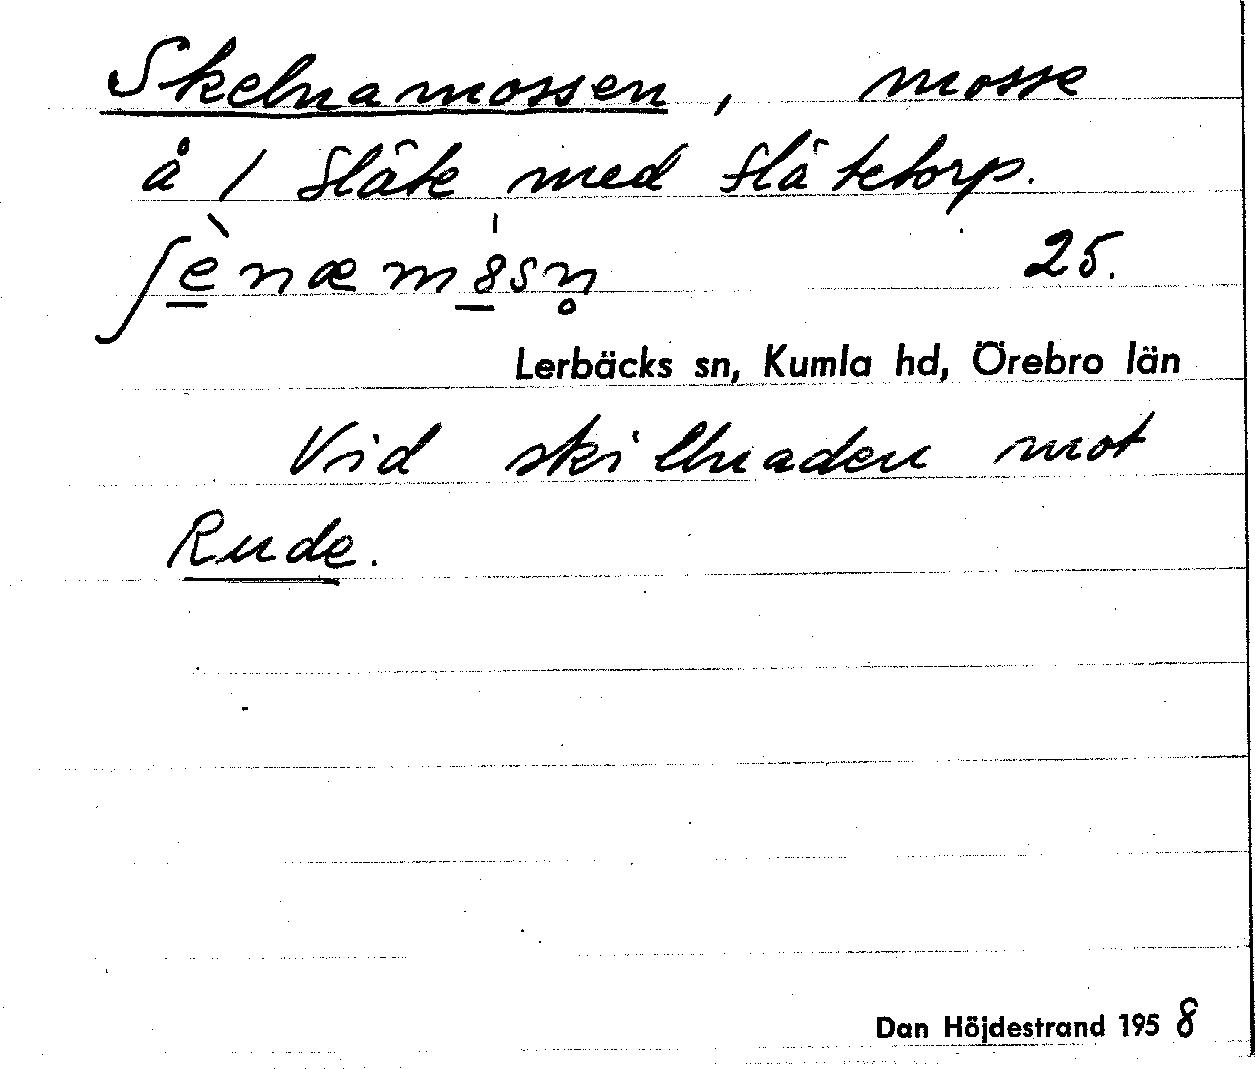 Skelnamossen, mosse
å 1 Slåte med Slåtetorp.
ʃènæmɵ̍sn̥ 25.
Lerbäcks sn, Kumla hd, Örebro län
Vid skillnaden mot
Rude.
Dan Höjdestrand 1958